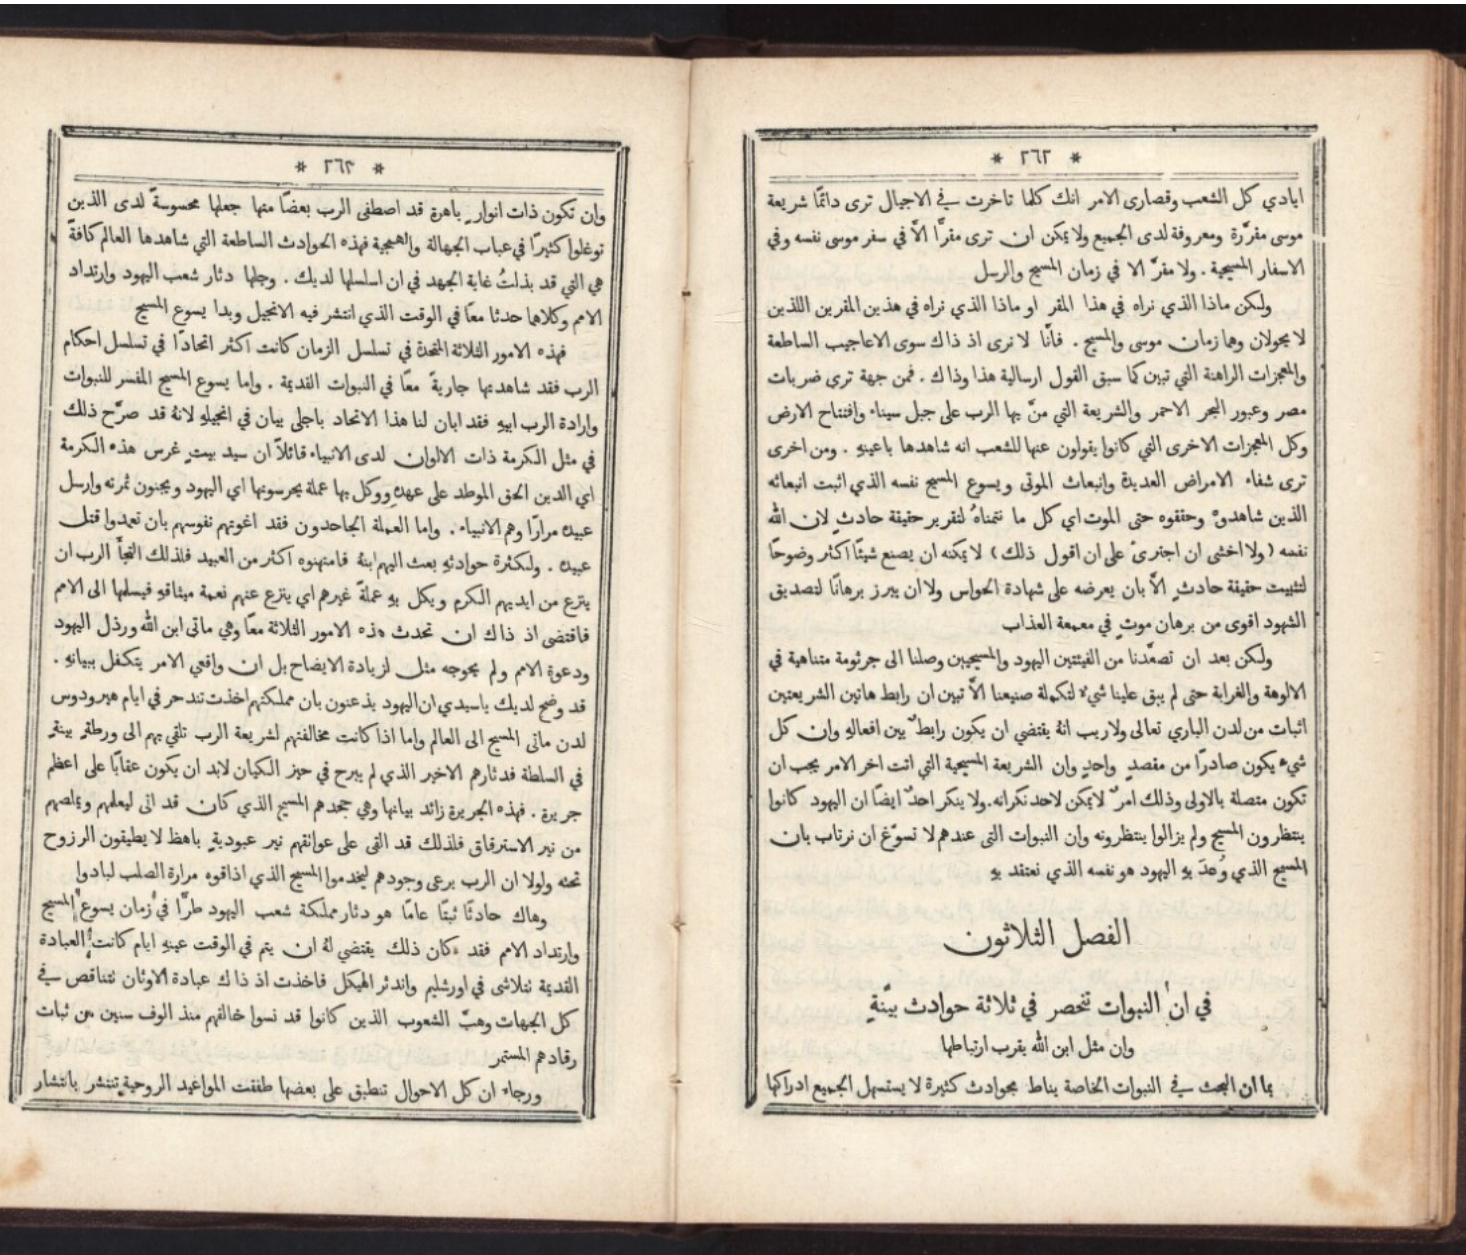 * ٢٦٢ *
ايادي كل الشعب وقصارى الامر انك كلما تاخرت في الاجيال ترى دائمًا شريعة
موسى مقرّرة ومعروفة لدى الجميع ولا يمكن ان ترى مقرًّا الّا في سفر موسى نفسه وفي
الاسفار المسيحية . ولا مقرّ الا في زمان المسيح والرسل
ولكن ماذا الذي نراه في هذا المقر او ماذا الذي نراه في هذين المقرين اللذين
لا يحولان وهما زمان موسى والمسيح . فانَّا لا نرى اذ ذاك سوى الاعاجيب الساطعة
والمعجزات الراهنة التي تبين كما سبق القول ارسالية هذا وذاك . فمن جهة ترى ضربات
مصر وعبور البحر الاحمر والشريعة التي منَّ بها الرب على جبل سيناء وافتتاح الارض
وكل المعجزات الاخرى التي كانوا يقولون عنها للشعب انه شاهدها باعينهِ . ومن اخرى
ترى شفاء الامراض العديدة وانبعاث الموتى ويسوع المسيح نفسه الذي اثبت انبعاثه
الذين شاهدوهُ وحققوه حتى الموت اي كل ما نتمناهُ لتقرير حقيقة حادثٍ لان الله
نفسه ( ولا اخشى ان اجترئ على ان اقول ذلك ) لا يمكنه ان يصنع شيئًا اكثر وضوحًا
لتثبيت حقيقة حادثٍ الّا بان يعرضه على شهادة الحواس ولا ان يبرز برهانًا لتصديق
الشهود اقوى من برهان موتٍ في معمعة العذاب
ولكن بعد ان تصعّدنا من الفئتين اليهود والمسيحيين وصلنا الى جرثومة متناهية في
الالوهة والغرابة حتى لم يبق علينا شيءٌ لتكملة صنيعنا الّا تبين ان رابط هاتين الشريعتين
اثبات من لدن الباري تعالى ولا ريب انهُ يقتضي ان يكون رابطٌ بين افعالهِ وان كل
شيءٍ يكون صادرًا من مقصدٍ واحدٍ وان الشريعة المسيحية التي اتت اخر الامر يجب ان
تكون متصلة بالاولى وذلك امرٌ لايمكن لاحد نكرانه. ولا ينكر احدٌ ايضًا ان اليهود كانوا
ينتظرون المسيح ولم يزالوا ينتظرونه وان النبوات التي عندهم لا تسوّغ ان نرتاب بان
المسيح الذي وُعدَ بهِ اليهود هو نفسه الذي نعتقد بهِ
الفصل الثلاثون
في ان النبوات تنحصر في ثلاثة حوادث بيّنةٍ
وان مثل ابن الله يقرب ارتباطها
بما ان البحث في النبوات الخاصة يناط بحوادث كثيرة لا يستسهل الجميع ادراكها
* ٢٦٣ *
وان تكون ذات انوارٍ باهرة قد اصطفى الرب بعضًا منها جعلها محسوسةً لدى الذين
توغلوا كثيرًا في عباب الجهالة والهمجية فهذه الحوادث الساطعة التي شاهدها العالم كافةً
هي التي قد بذلتُ غاية الجهد في ان اسلسلها لديك . وجلها دثار شعب اليهود وارتداد
الامم وكلاهما حدثا معًا في الوقت الذي انتشر فيه الانجيل وبدا يسوع المسيح
فهذه الامور الثلاثة المتحدة في تسلسل الزمان كانت اكثر اتحادًا في تسلسل احكام
الرب فقد شاهدتها جاريةً معًا في النبوات القديمة . واما يسوع المسيح المفسر للنبوات
وارادة الرب ابيهِ فقد ابان لنا هذا الاتحاد باجلى بيان في انجيلهِ لانهُ قد صرّح ذلك
في مثل الكرمة ذات الالوان لدى الانبياء قائلًا ان سيد بيتٍ غرس هذه الكرمة
اي الدين الحق الموطد على عهدهِ ووكل بها عملة يحرسونها اي اليهود ويجنون ثمرته وارسل
عبيده مرارًا وهم الانبياء. واما العملة الجاحدون فقد اغوتهم نفوسهم بان تعمدوا قتل
عبيده . ولكثرة حوادثهِ بعث اليهم ابنهُ فامتهنوه اكثر من العبيد فلذلك التجأ الرب ان
ينزع من ايديهم الكرم ويكل بهِ عملةً غيرهم اي ينزع عنهم نعمة ميثاقهِ فيسلمها الى الامم
فاقتضى اذ ذاك ان تحدث هذه الامور الثلاثة معًا وهي ماتى ابن الله ورذل اليهود
ودعوة الامم ولم يحوجه مثل لزيادة الايضاح بل ان واقعي الامر يتكفل ببيانهِ .
قد وضح لديك ياسيدي ان اليهود يذعنون بان مملكتهم اخذت تندحر في ايام هيرودوس
لدن ماتى المسيح الى العالم واما اذا كانت مخالفتهم لشريعة الرب تلقي بهم الى ورطةٍ بينةٍ
في السلطة فدثارهم الاخير الذي لم يبرح في حيز الكيان لابد ان يكون عقابًا على اعظم
جريرة . فهذه الجريرة زائد بيانها وهي جحدهم المسيح الذي كان قد اتى ليعلمهم ويملصهم
من نير الاسترقاق فلذلك قد القى على عواتقهم نير عبوديةٍ باهظ لا يطيقون الرزوح
تحته ولولا ان الرب يرعى وجودهم ليخدموا المسيح الذي اذاقوه مرارة الصلب لبادوا
وهاك حادثًا ثبتًا عامًا هو دثار مملكة شعب اليهود طرًّا في زمان يسوع المسيح
وارتداد الامم فقد كان ذلك يقتضي لهُ ان يتم في الوقت عينهِ ايام كانت العبادة
القديمة تتلاشى في اورشليم واندثر الهيكل فاخذت اذ ذاك عبادة الاوثان تتناقص في
كل الجهات وهبّ الشعوب الذين كانوا قد نسوا خالقهم منذ الوف سنين من ثبات
رقادهم المستمر
ورجاء ان كل الاحوال تنطبق على بعضها طفقت المواعيد الروحية تنتشر بانتشار